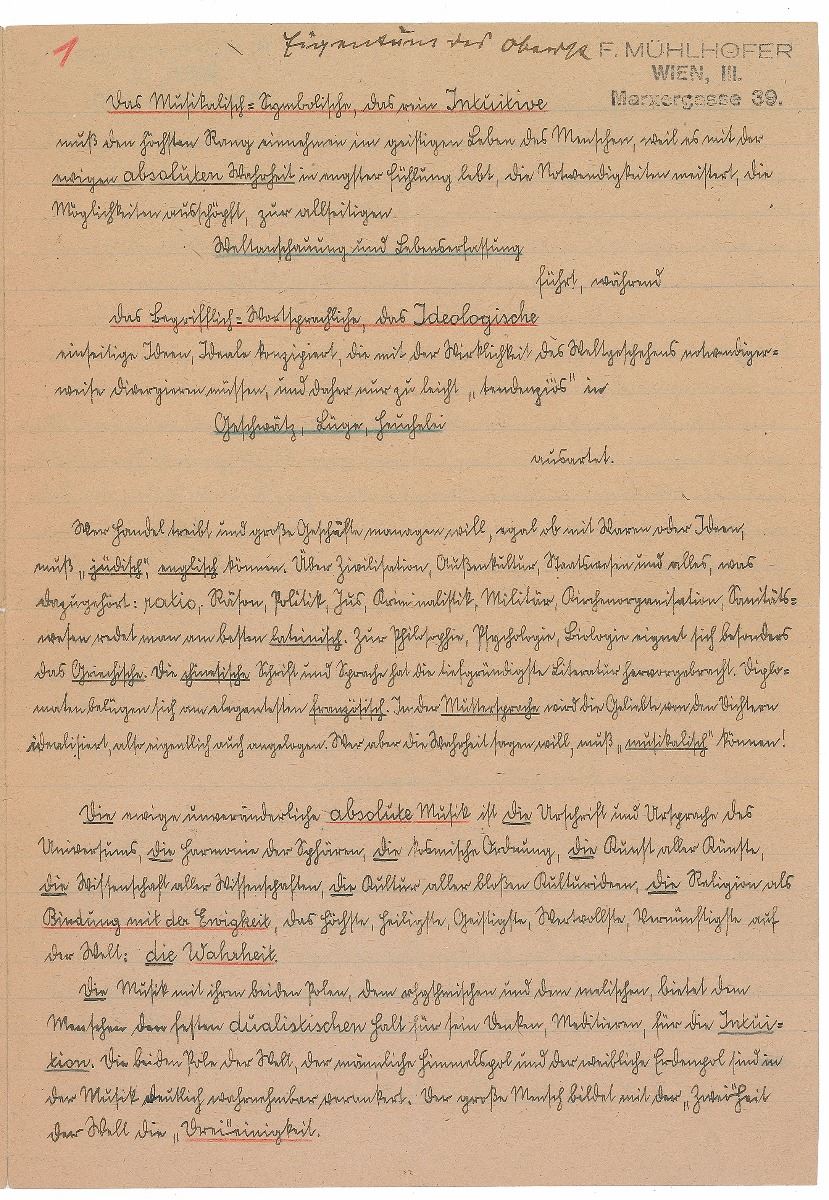 1
Eigentum des Oberst F. MÜHLHOFER
WIEN, III.
Marxergasse 39.
Das Musikalisch=Symbolische, das rein Intuitive
muß den höchsten Rang einnehmen im geistigen Leben des Menschen, weil es mit der
ewigen absoluten Wahrheit in engster Fühlung lebt, die Notwendigkeiten meistert, die
Möglichkeiten ausschöpft, zur allseitigen
Weltanschauung und Lebenserfassung
führt, während
das Begrifflich=Wortsprachliche, das Ideologische
einseitige Ideen, Ideale konzipiert, die mit der Wirklichkeit des Weltgeschehens notwendiger=
weise divergieren müssen, und daher nur zu leicht „tendenziös" in
Geschwätz, Lüge, Heuchelei
ausartet.
Wer Handel treibt und große Geschäfte managen will, egal ob mit Waren oder Ideen,
muß „jüdisch", englisch können. Über Zivilisation, Außenkultur, Staatswesen und alles, was
dazugehört: ratio, Räson, Politik, Jus, Kriminalistik, Militär, Kirchenorganisation, Sanitäts=
wesen redet man am besten lateinisch. Zur Philosophie, Psychologie, Biologie eignet sich besonders
das Griechische. Die chinesische Schrift und Sprache hat die tiefgründigste Literatur hervorgebracht. Diplo=
maten belügen sich am elegantesten französisch. In der Muttersprache wird die Geliebte von den Dichtern
idealisiert, also eigentlich auch angelogen. Wer aber die Wahrheit sagen will, muß „musikalisch" können!
Die ewige unveränderliche absolute Musik ist die Urschrift und Ursprache des
Universums, die Harmonie der Sphären, die kosmische Ordnung, die Kunst aller Künste,
die Wissenschaft aller Wissenschaften, die Kultur aller bloßen Kulturideen, die Religion als
Bindung mit der Ewigkeit, das Höchste, Heiligste, Geistigste, Wertvollste, Vernünftigste auf
der Welt: die Wahrheit.
Die Musik mit ihren beiden Polen, dem rhythmischen und dem melischen, bietet dem
Menschen den festen dualistischen Halt für sein Denken, Meditieren, für die Intui=
tion. Die beiden Pole der Welt, der männliche Himmelspol und der weibliche Erdenpol sind in
der Musik deutlich wahrnehmbar verankert. Der große Mensch bildet mit der „Zwei"heit
der Welt die „Drei"einigkeit.